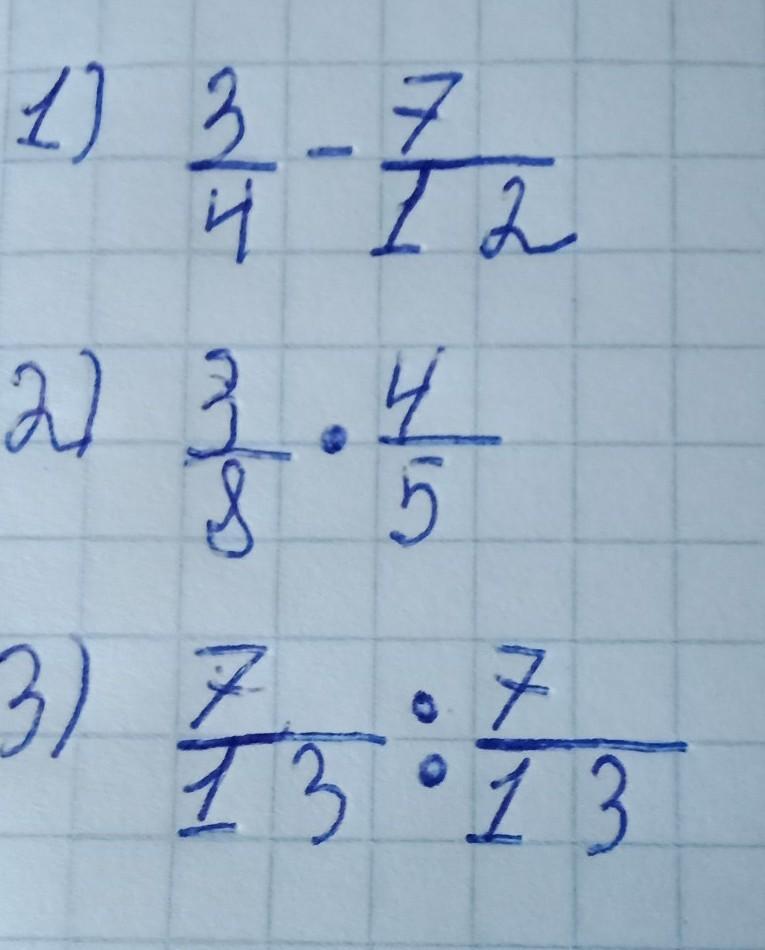 1) 3/4 - 7/12
2) 3/8 · 4/5
3) 7/13 : 7/13